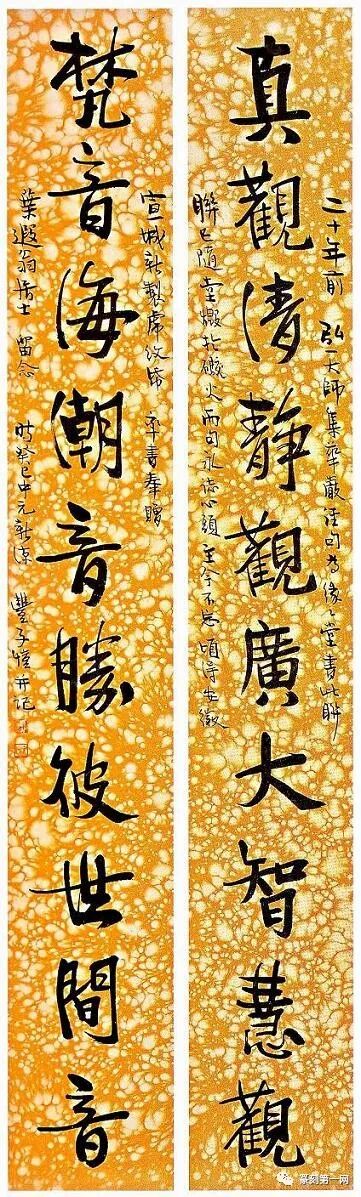 真觀清靜觀廣大智慧觀
二十年前 弘一大師集華嚴經句為緣々堂書此聯
聯已隨堂燬於礮火而句永誌心頭至今不忘頃得安徽
梵音海潮音勝彼世間音
宣城新製虎紋 率書奉贈
葉遐翁居士 留念 時癸巳中元新涼 豐子愷并记
篆刻第一网